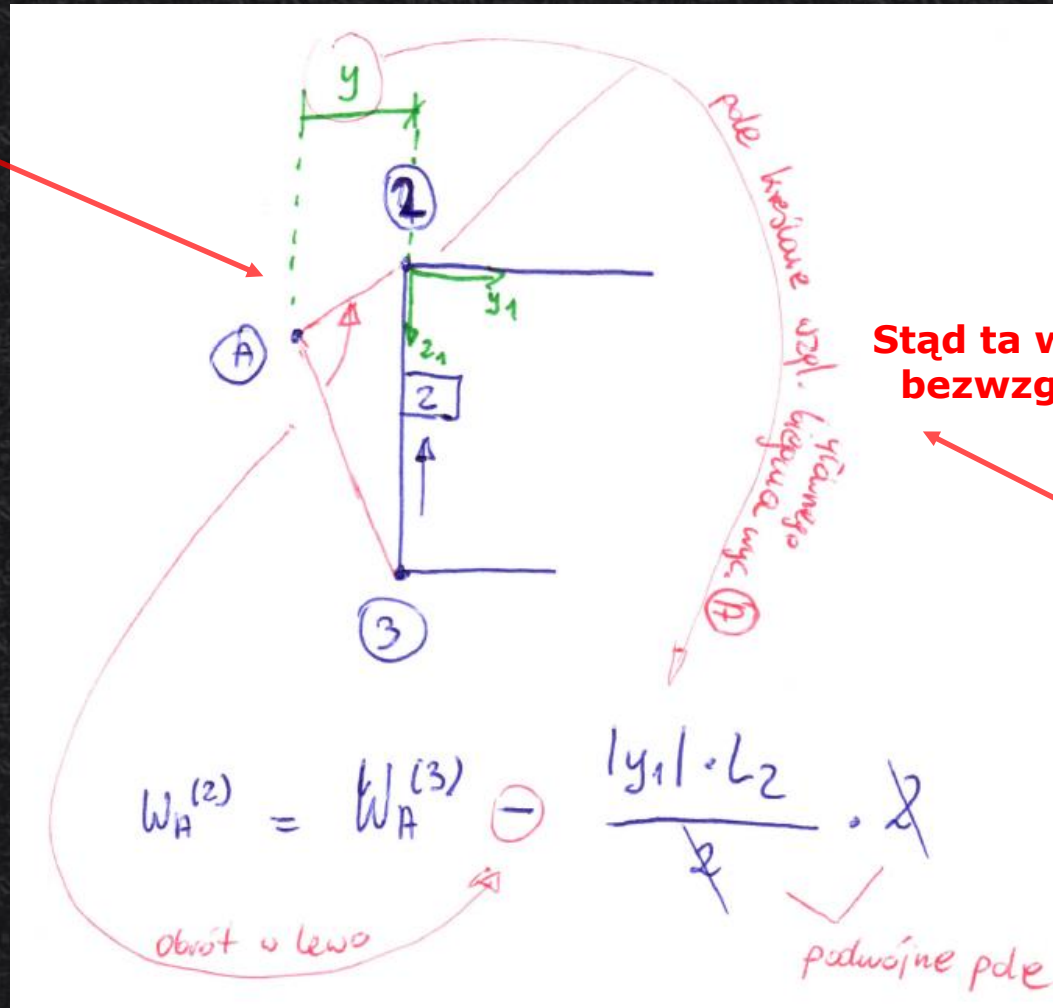 y
2
y1
z1
A
2
3
pole kreślone wzgl. głównego
bieguna wyc. A
Stąd ta w
bezwzg
ωA(2) = ωA(3) − |y1| · L2 / 2 · 2
obrót w lewo
podwójne pole